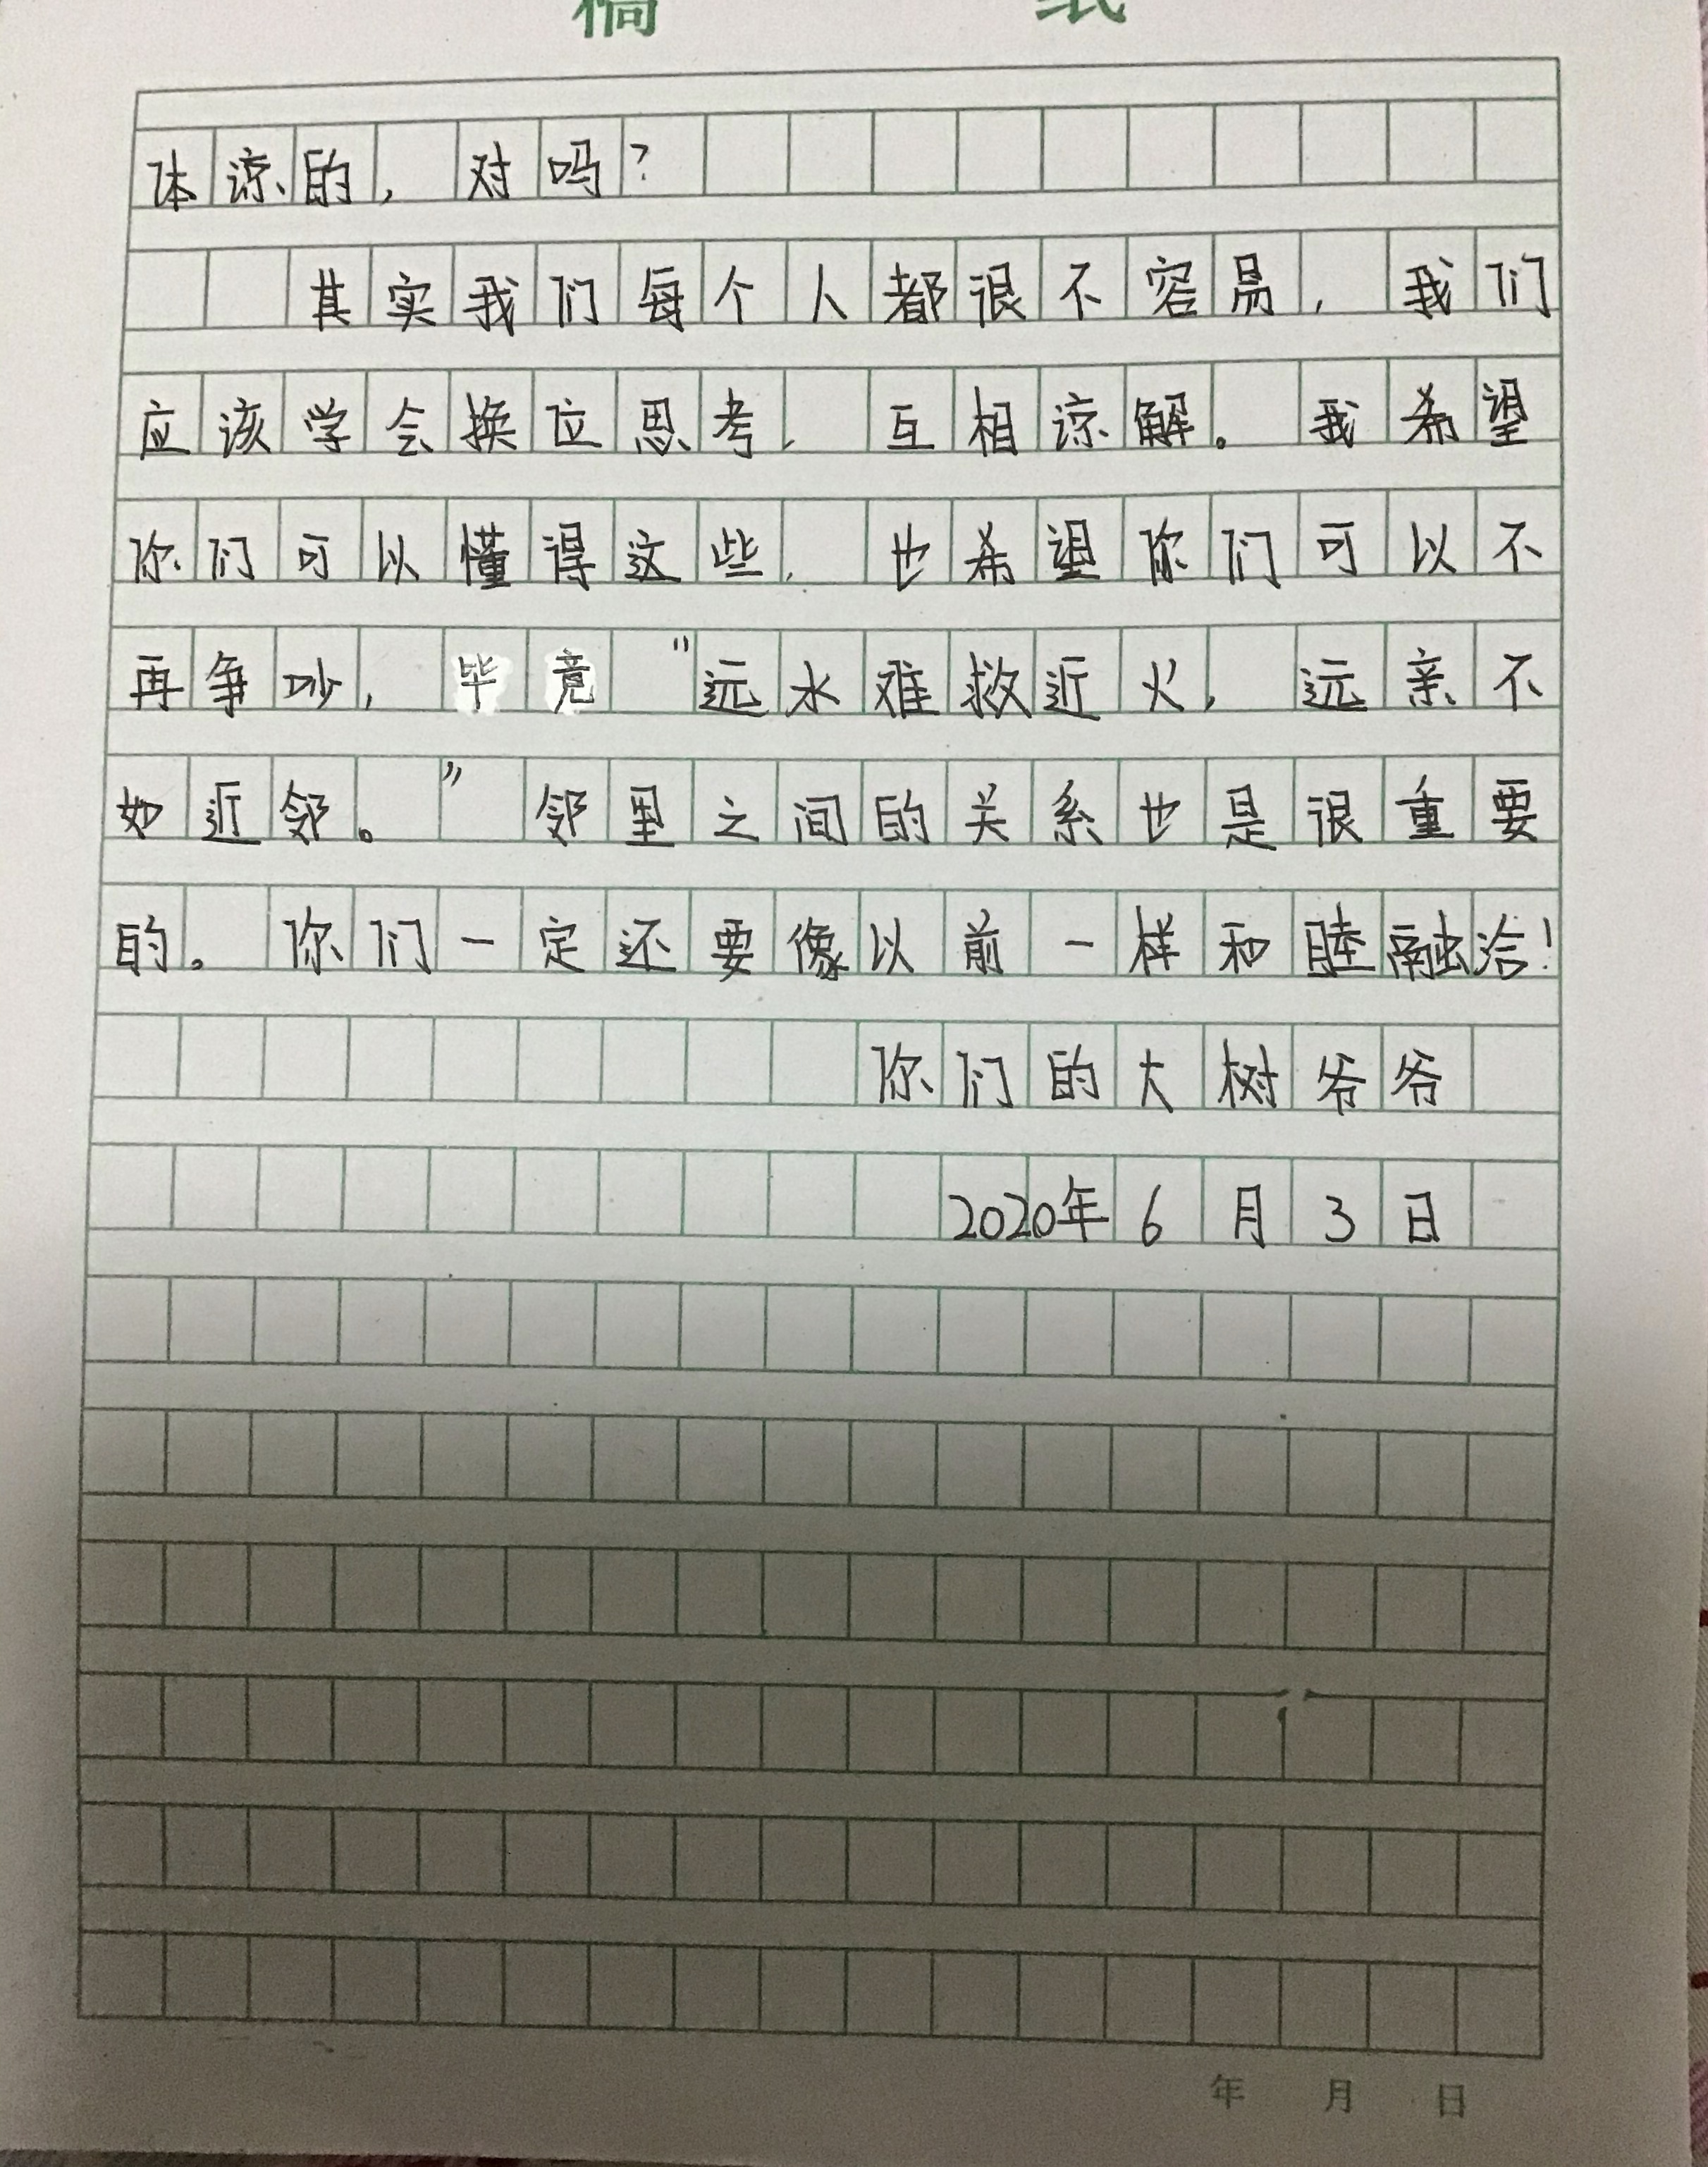 稿 纸
体谅的，对吗？
其实我们每个人都很不容易，我们
应该学会换位思考，互相谅解。我希望
你们可以懂得这些，也希望你们可以不
再争吵，毕竟“远水难救近火，远亲不
如近邻。”邻里之间的关系也是很重要
的。你们一定还要像以前一样和睦融洽！
你们的大树爷爷
2020年6月3日
年 月 日